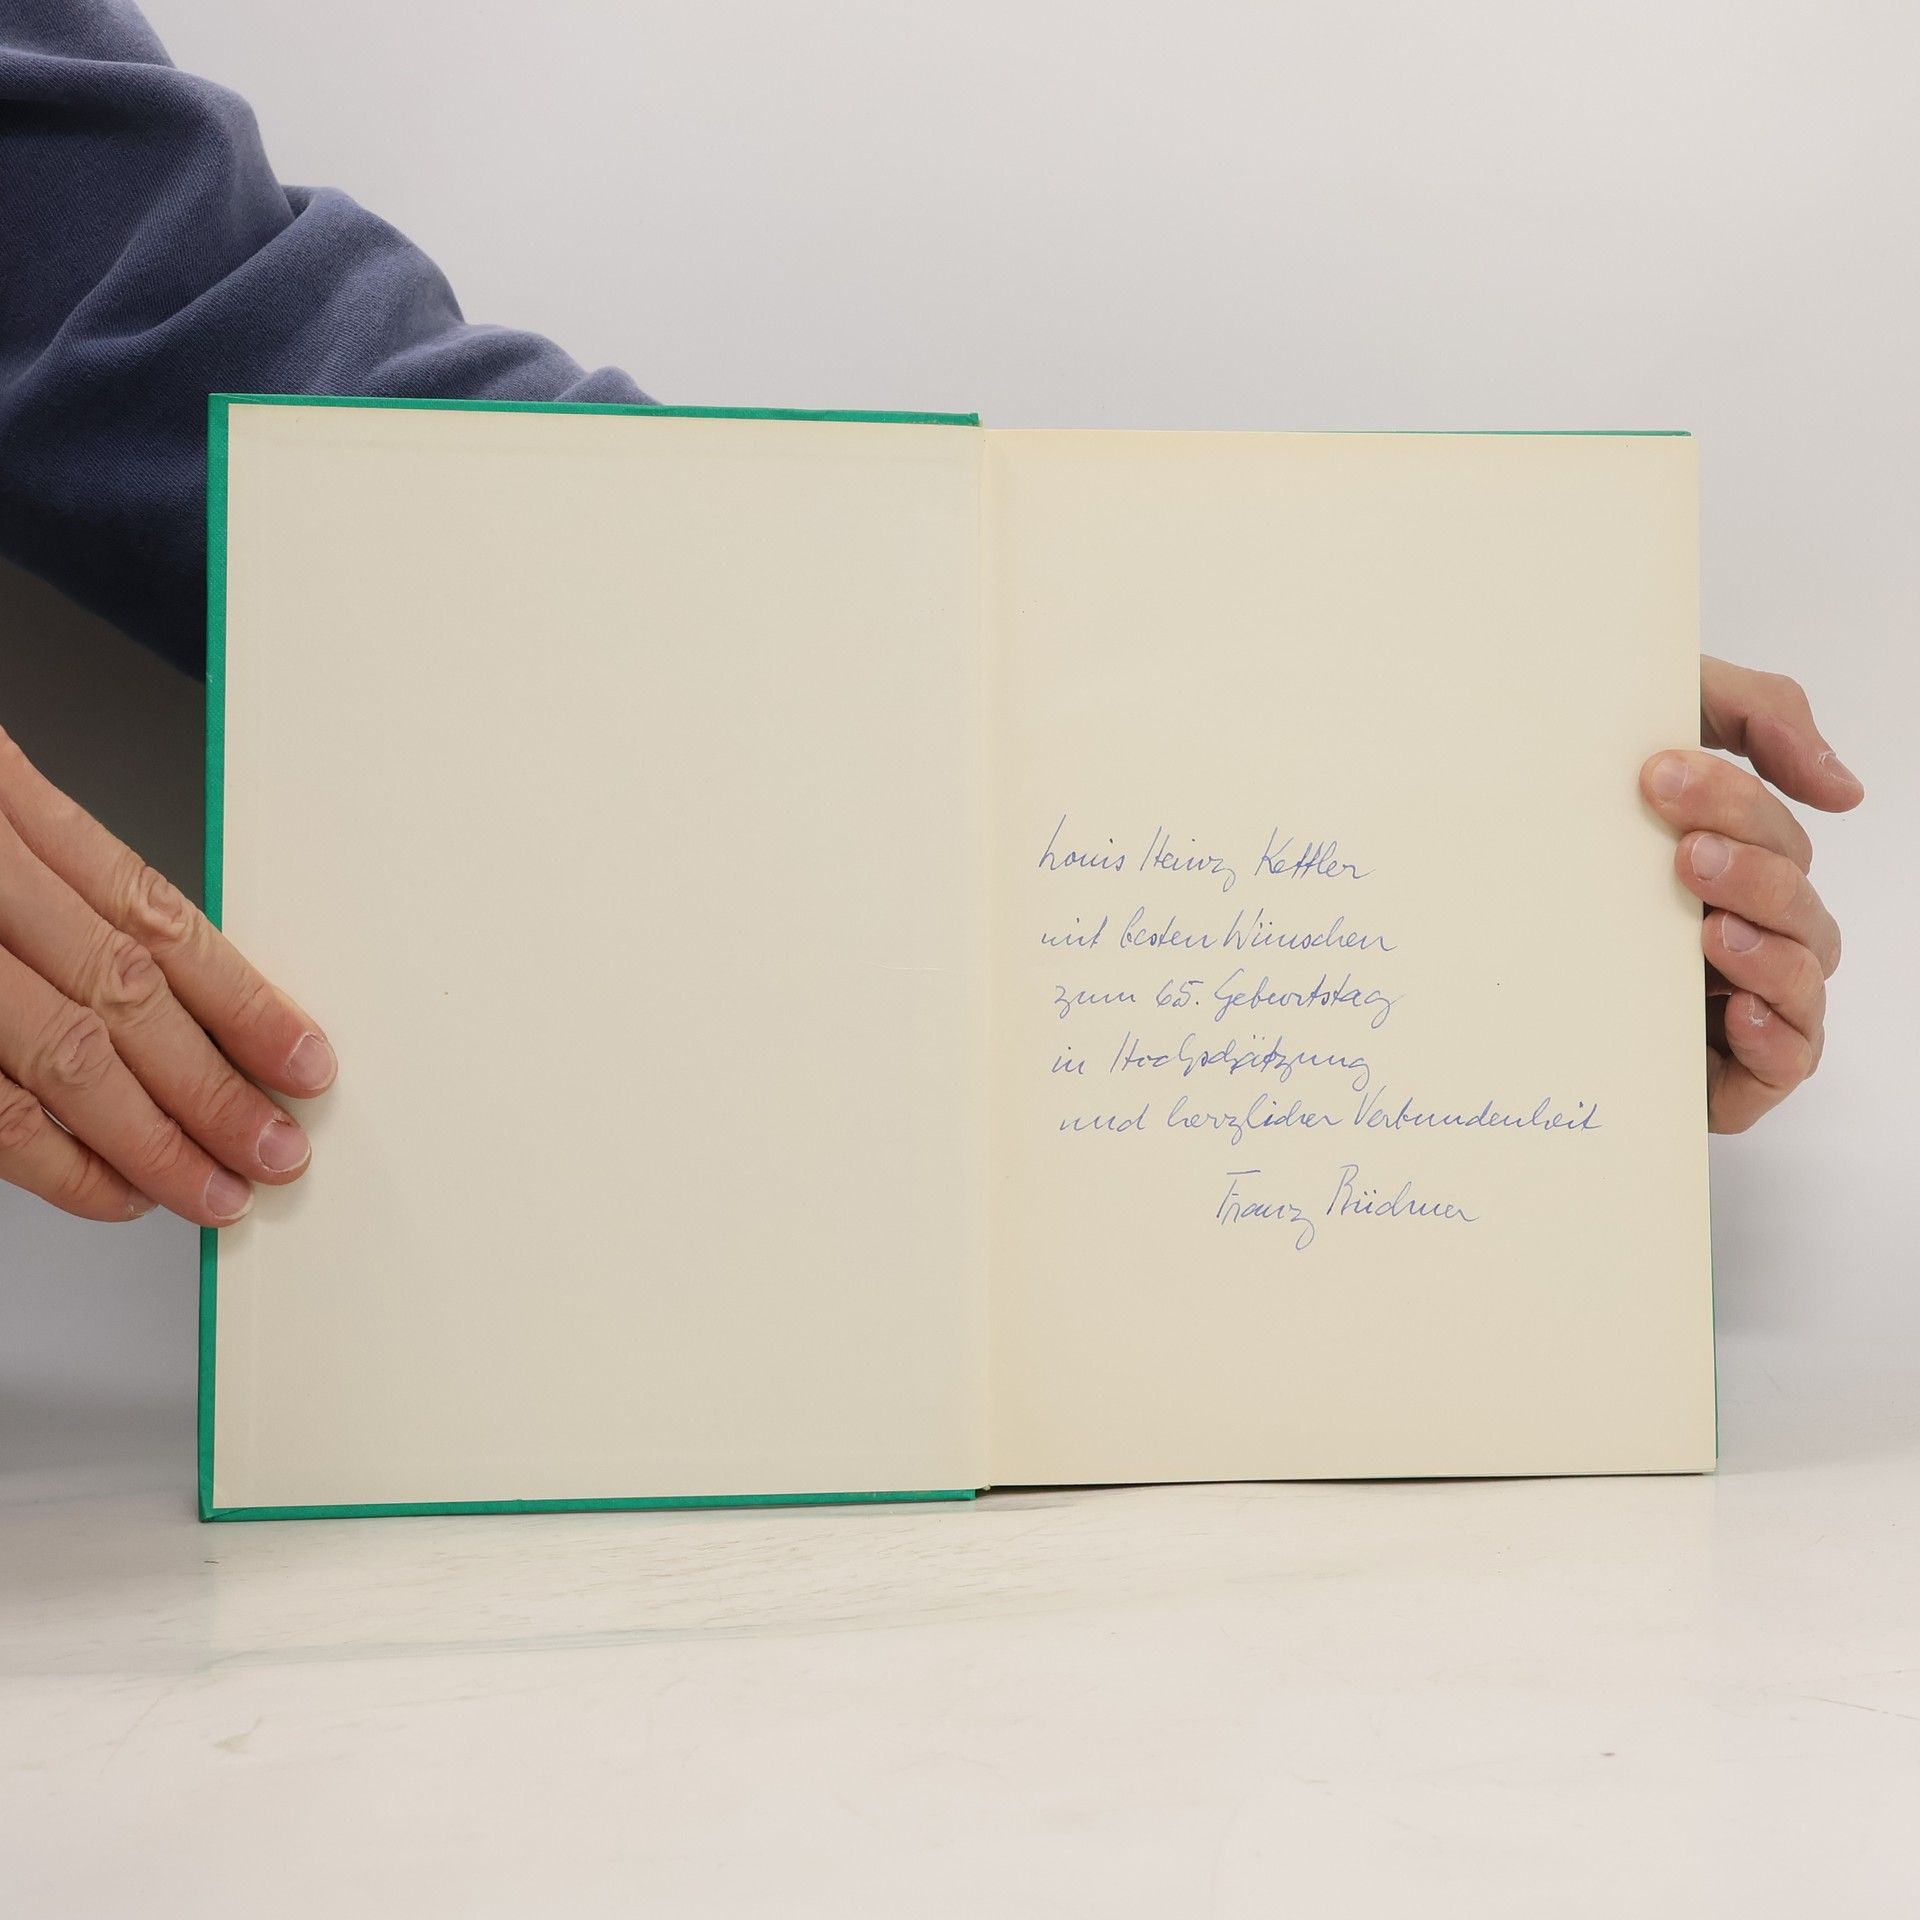 Louis Heinz Kettler
mit besten Wünschen
zum 65. Geburtstag
in Hochschätzung
und herzlicher Verbundenheit
Franz Büchner